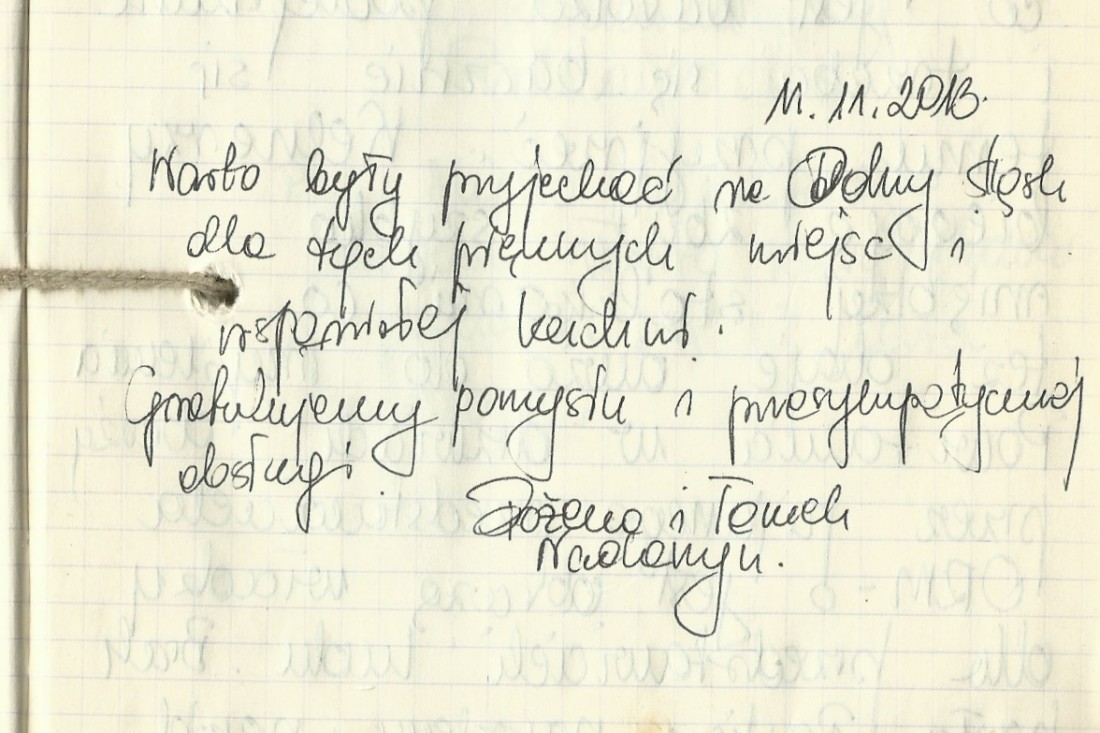 11.11.2013.
Warto były przyjechać na Dolny Śląsk
dla tych pięknych miejsc i
wspaniałej kuchni.
Gratulujemy pomysłu i przesympatycznej
obsługi
Bożena i Tomek